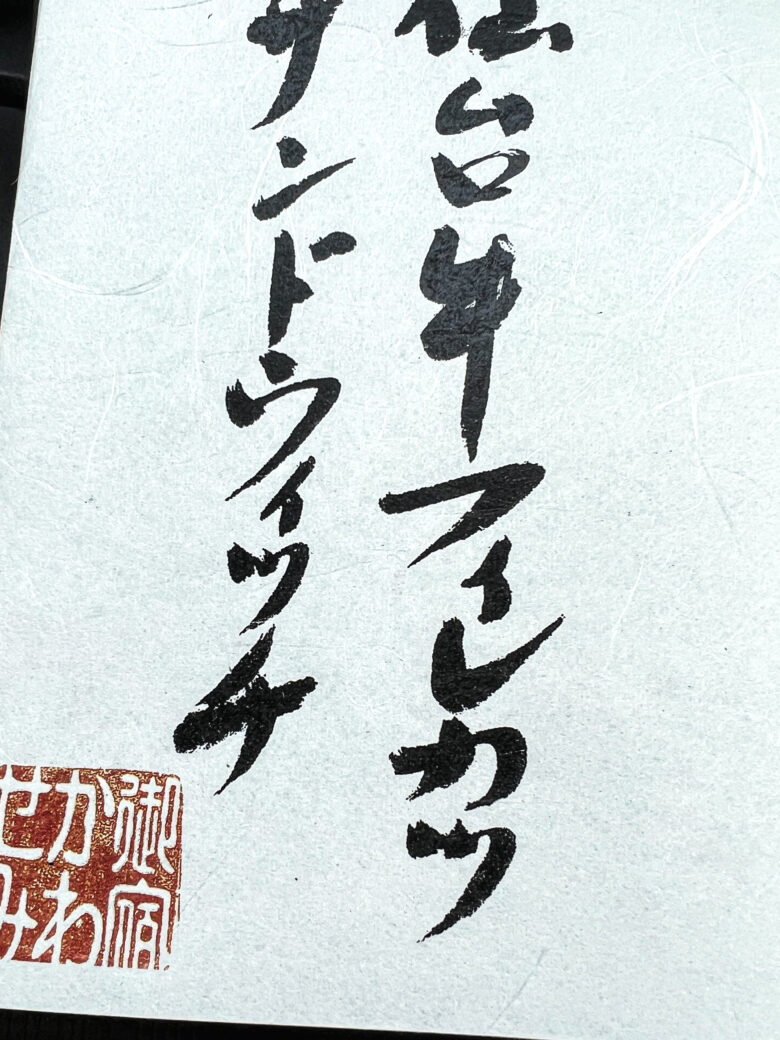 仙台牛フィレカツ
サンドウィッチ
御宿
かわ
せみ